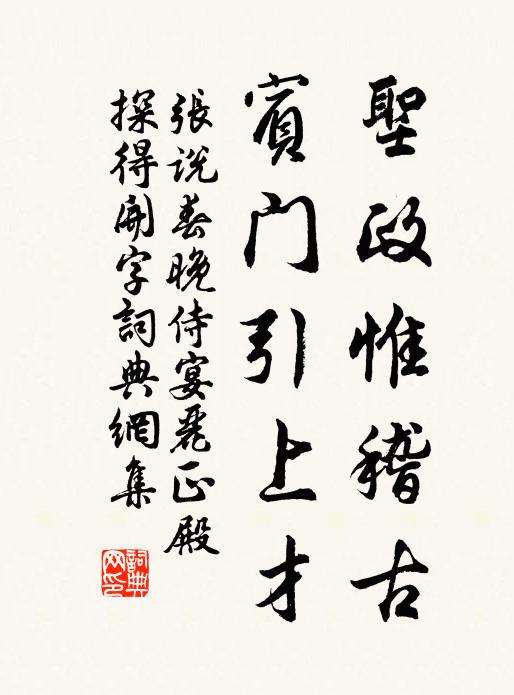 聖政惟稽古
賓門引上才
張説春晚侍宴麗正殿
探得開字詞典網集
詞典网印